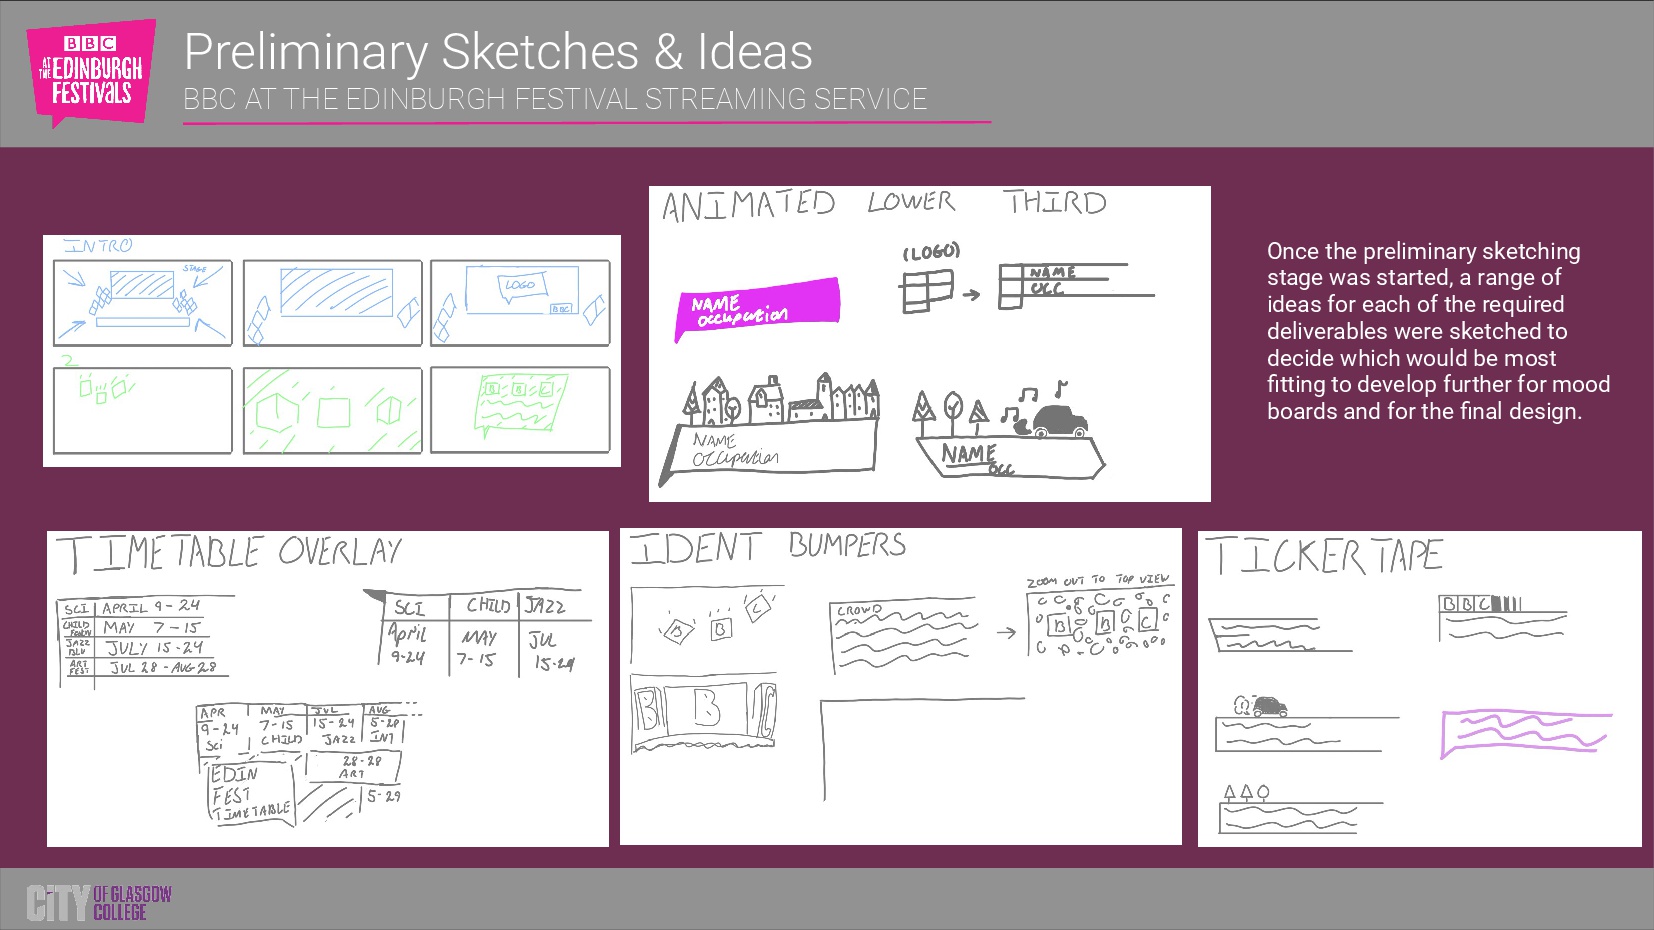 BBC
AT THE EDINBURGH
FESTIVALS
Preliminary Sketches & Ideas
BBC AT THE EDINBURGH FESTIVAL STREAMING SERVICE
INTRO
STAGE
LOGO
BBC
2
B B C
ANIMATED LOWER THIRD
NAME
occupation
(LOGO)
NAME
OCC
NAME
Occupation
NAME
OCC
Once the preliminary sketching
stage was started, a range of
ideas for each of the required
deliverables were sketched to
decide which would be most
fitting to develop further for mood
boards and for the final design.
TIMETABLE OVERLAY
SCI APRIL 9-24
CHILD MAY 7-15
JAZZ JULY 15-24
ART FEST JUL 28-AUG 28
SCI CHILD JAZZ
April MAY JUL
9-24 7-15 15-24
APR MAY JUL AUG
9-24 7-15 15-24 5-29
Sci CHILD JAZZ INT
28-28
ART
5-29
EDIN
FEST
TIMETABLE
IDENT BUMPERS
B B C
B B C
CROWD
ZOOM OUT TO TOP VIEW
B B C
TICKER TAPE
BBC
CITY OF GLASGOW
COLLEGE